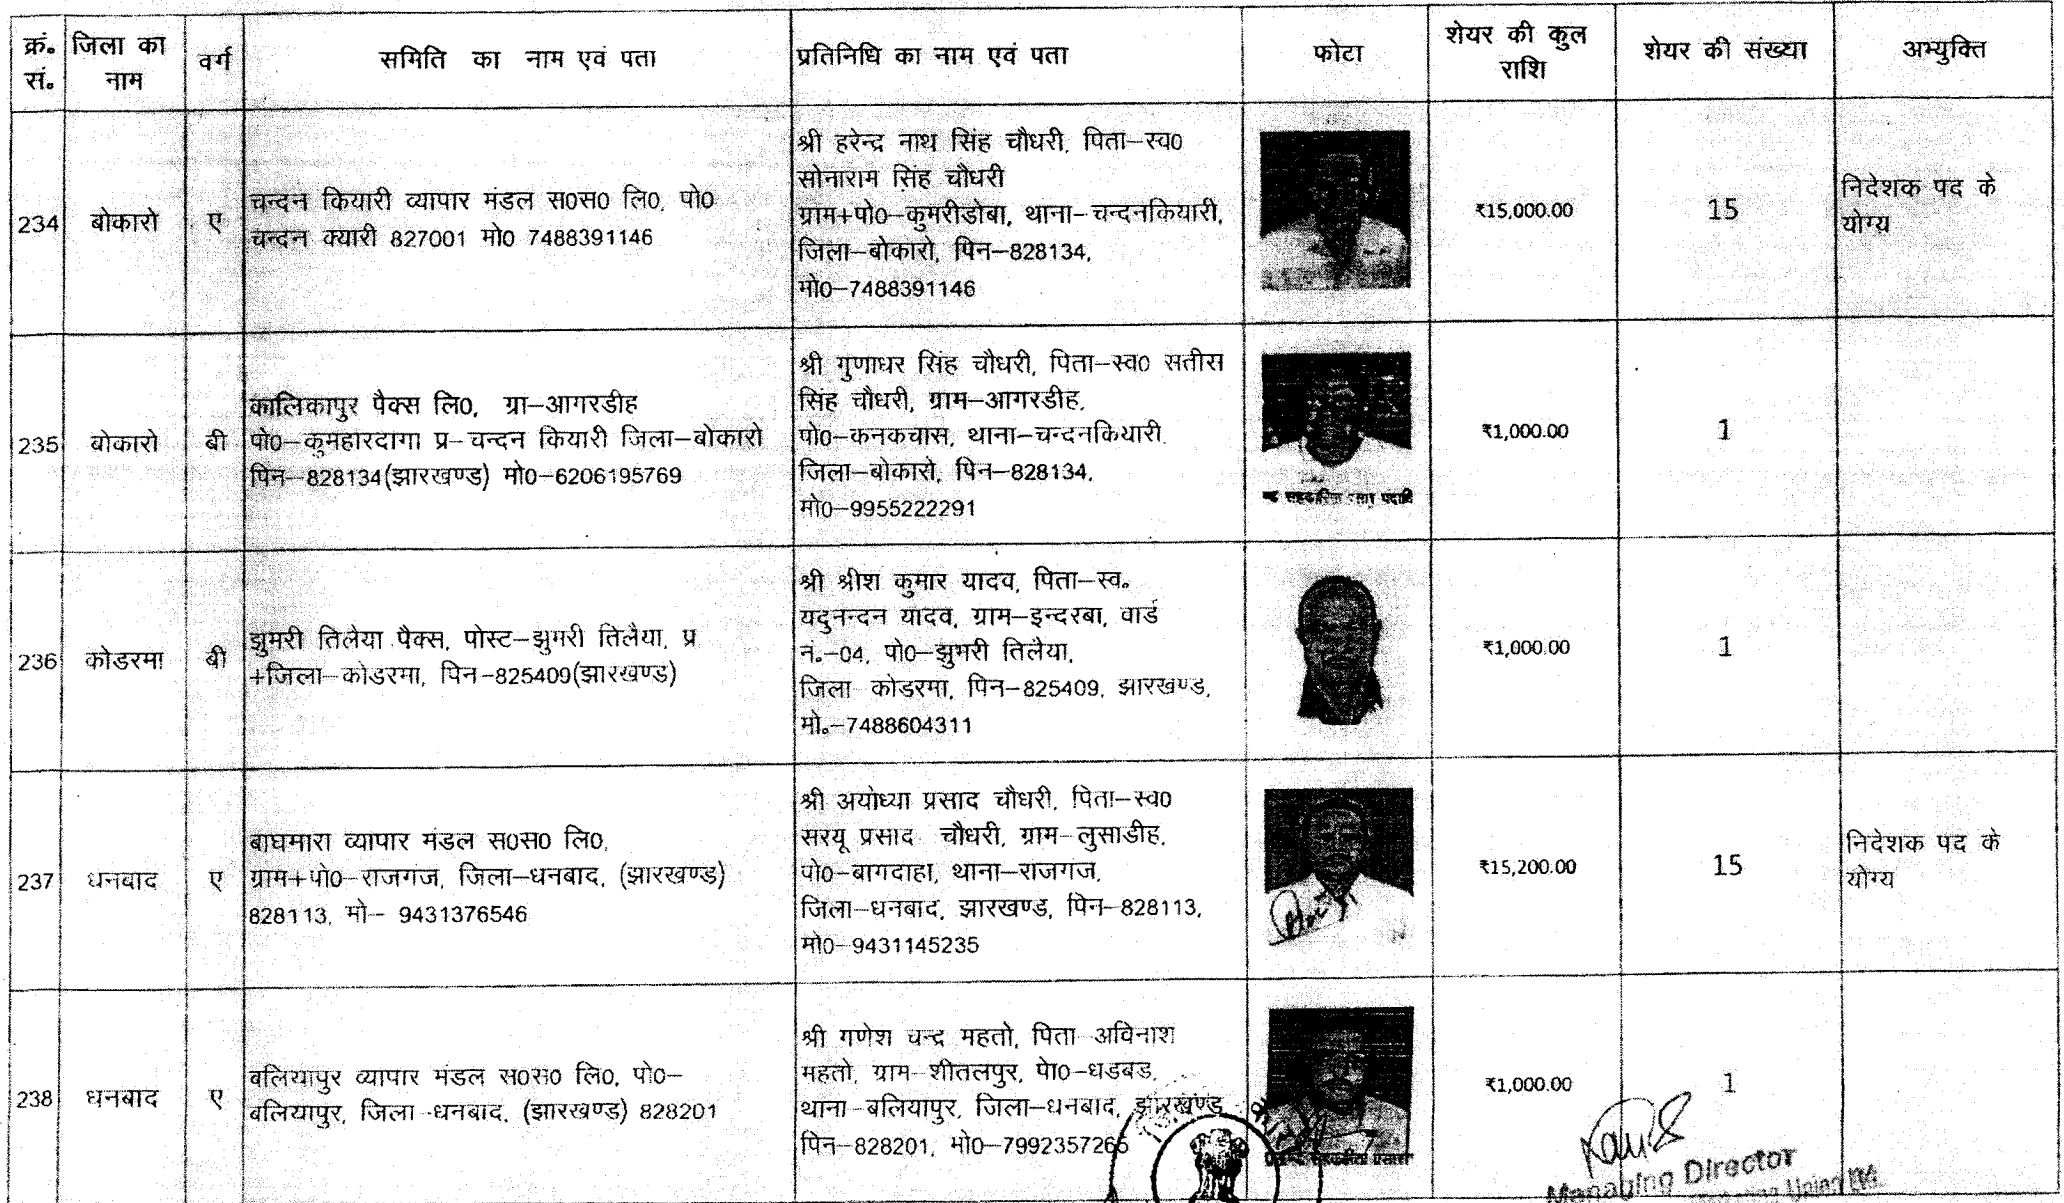 क्रं. सं. जिला का नाम वर्ग समिति का नाम एवं पता प्रतिनिधि का नाम एवं पता फोटा शेयर की कुल राशि शेयर की संख्या अभ्युक्ति
234 बोकारो ए
चन्दन कियारी व्यापार मंडल स0स0 लि0, पो0
चन्दन क्यारी 827001 मो0 7488391146
श्री हरेन्द्र नाथ सिंह चौधरी, पिता–स्व0
सोनाराम सिंह चौधरी
ग्राम+पो0–कुमरीडोबा, थाना–चन्दनकियारी,
जिला–बोकारो, पिन–828134,
मो0–7488391146
₹15,000.00 15
निदेशक पद के
योग्य
235 बोकारो बी
कालिकापुर पैक्स लि0, ग्रा–आगरडीह
पो0–कुमहारदागा प्र–चन्दन कियारी जिला–बोकारो
पिन–828134(झारखण्ड) मो0–6206195769
श्री गुणाधर सिंह चौधरी, पिता–स्व0 सतीस
सिंह चौधरी, ग्राम–आगरडीह,
पो0–कनकचास, थाना–चन्दनकियारी,
जिला–बोकारो, पिन–828134,
मो0–9955222291
₹1,000.00 1
236 कोडरमा बी
झुमरी तिलैया पैक्स, पोस्ट–झुमरी तिलैया, प्र
+जिला–कोडरमा, पिन–825409(झारखण्ड)
श्री श्रीश कुमार यादव, पिता–स्व.
यदुनन्दन यादव, ग्राम–इन्दरबा, वार्ड
न.–04, पो0–झुमरी तिलैया,
जिला कोडरमा, पिन–825409, झारखण्ड,
मो.–7488604311
₹1,000.00 1
237 धनबाद ए
बाघमारा व्यापार मंडल स0स0 लि0,
ग्राम+पो0–राजगंज, जिला–धनबाद, (झारखण्ड)
828113, मो– 9431376546
श्री अयोध्या प्रसाद चौधरी, पिता–स्व0
सरयू प्रसाद चौधरी, ग्राम–लुसाडीह,
पो0–बागदाहा, थाना–राजगंज,
जिला–धनबाद, झारखण्ड, पिन–828113,
मो0–9431145235
₹15,200.00 15
निदेशक पद के
योग्य
238 धनबाद ए
बलियापुर व्यापार मंडल स0स0 लि0, पो0–
बलियापुर, जिला–धनबाद, (झारखण्ड) 828201
श्री गणेश चन्द्र महतो, पिता अविनाश
महतो, ग्राम–शीतलपुर, पेा0–धडबड,
थाना–बलियापुर, जिला–धनबाद, झारखण्ड
पिन–828201, मो0–7992357265
₹1,000.00 1
Managing Director